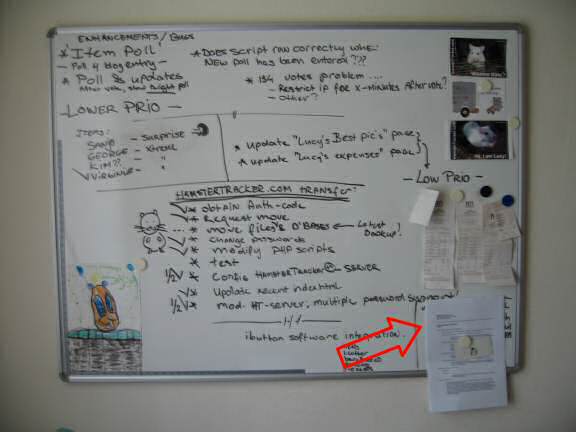 ENHANCEMENTS / Bugs
* 'Item Poll'
- Poll 4 blog entry -
* Poll & updates
After vote, start right poll
* Does script run correctly when
New poll has been entered ???
* 134 votes problem ...
- Restrict IP for X-Minutes After vote?
- Other?
- Lower Prio -
Items:
SAND - Surprise
GEORGE - xtreme
KIM?? - "
Virginie - "
* update "Lucy's Best pic's" page
* update "Lucy's expenses" page
- Low Prio -
Hi, I am Lucy!
HAMSTERTRACKER.COM TRANSFER:
* obtain Auth-code
* Request move
... * move files & D'BASES ← Latest Backup?
* change passwords
* modify PHP scripts
* test
1/2 * Config HamsterTracker@ - Server
* Update recent index.html
1/2 * mod. HT-server, multiple password support
ibutton software integration.